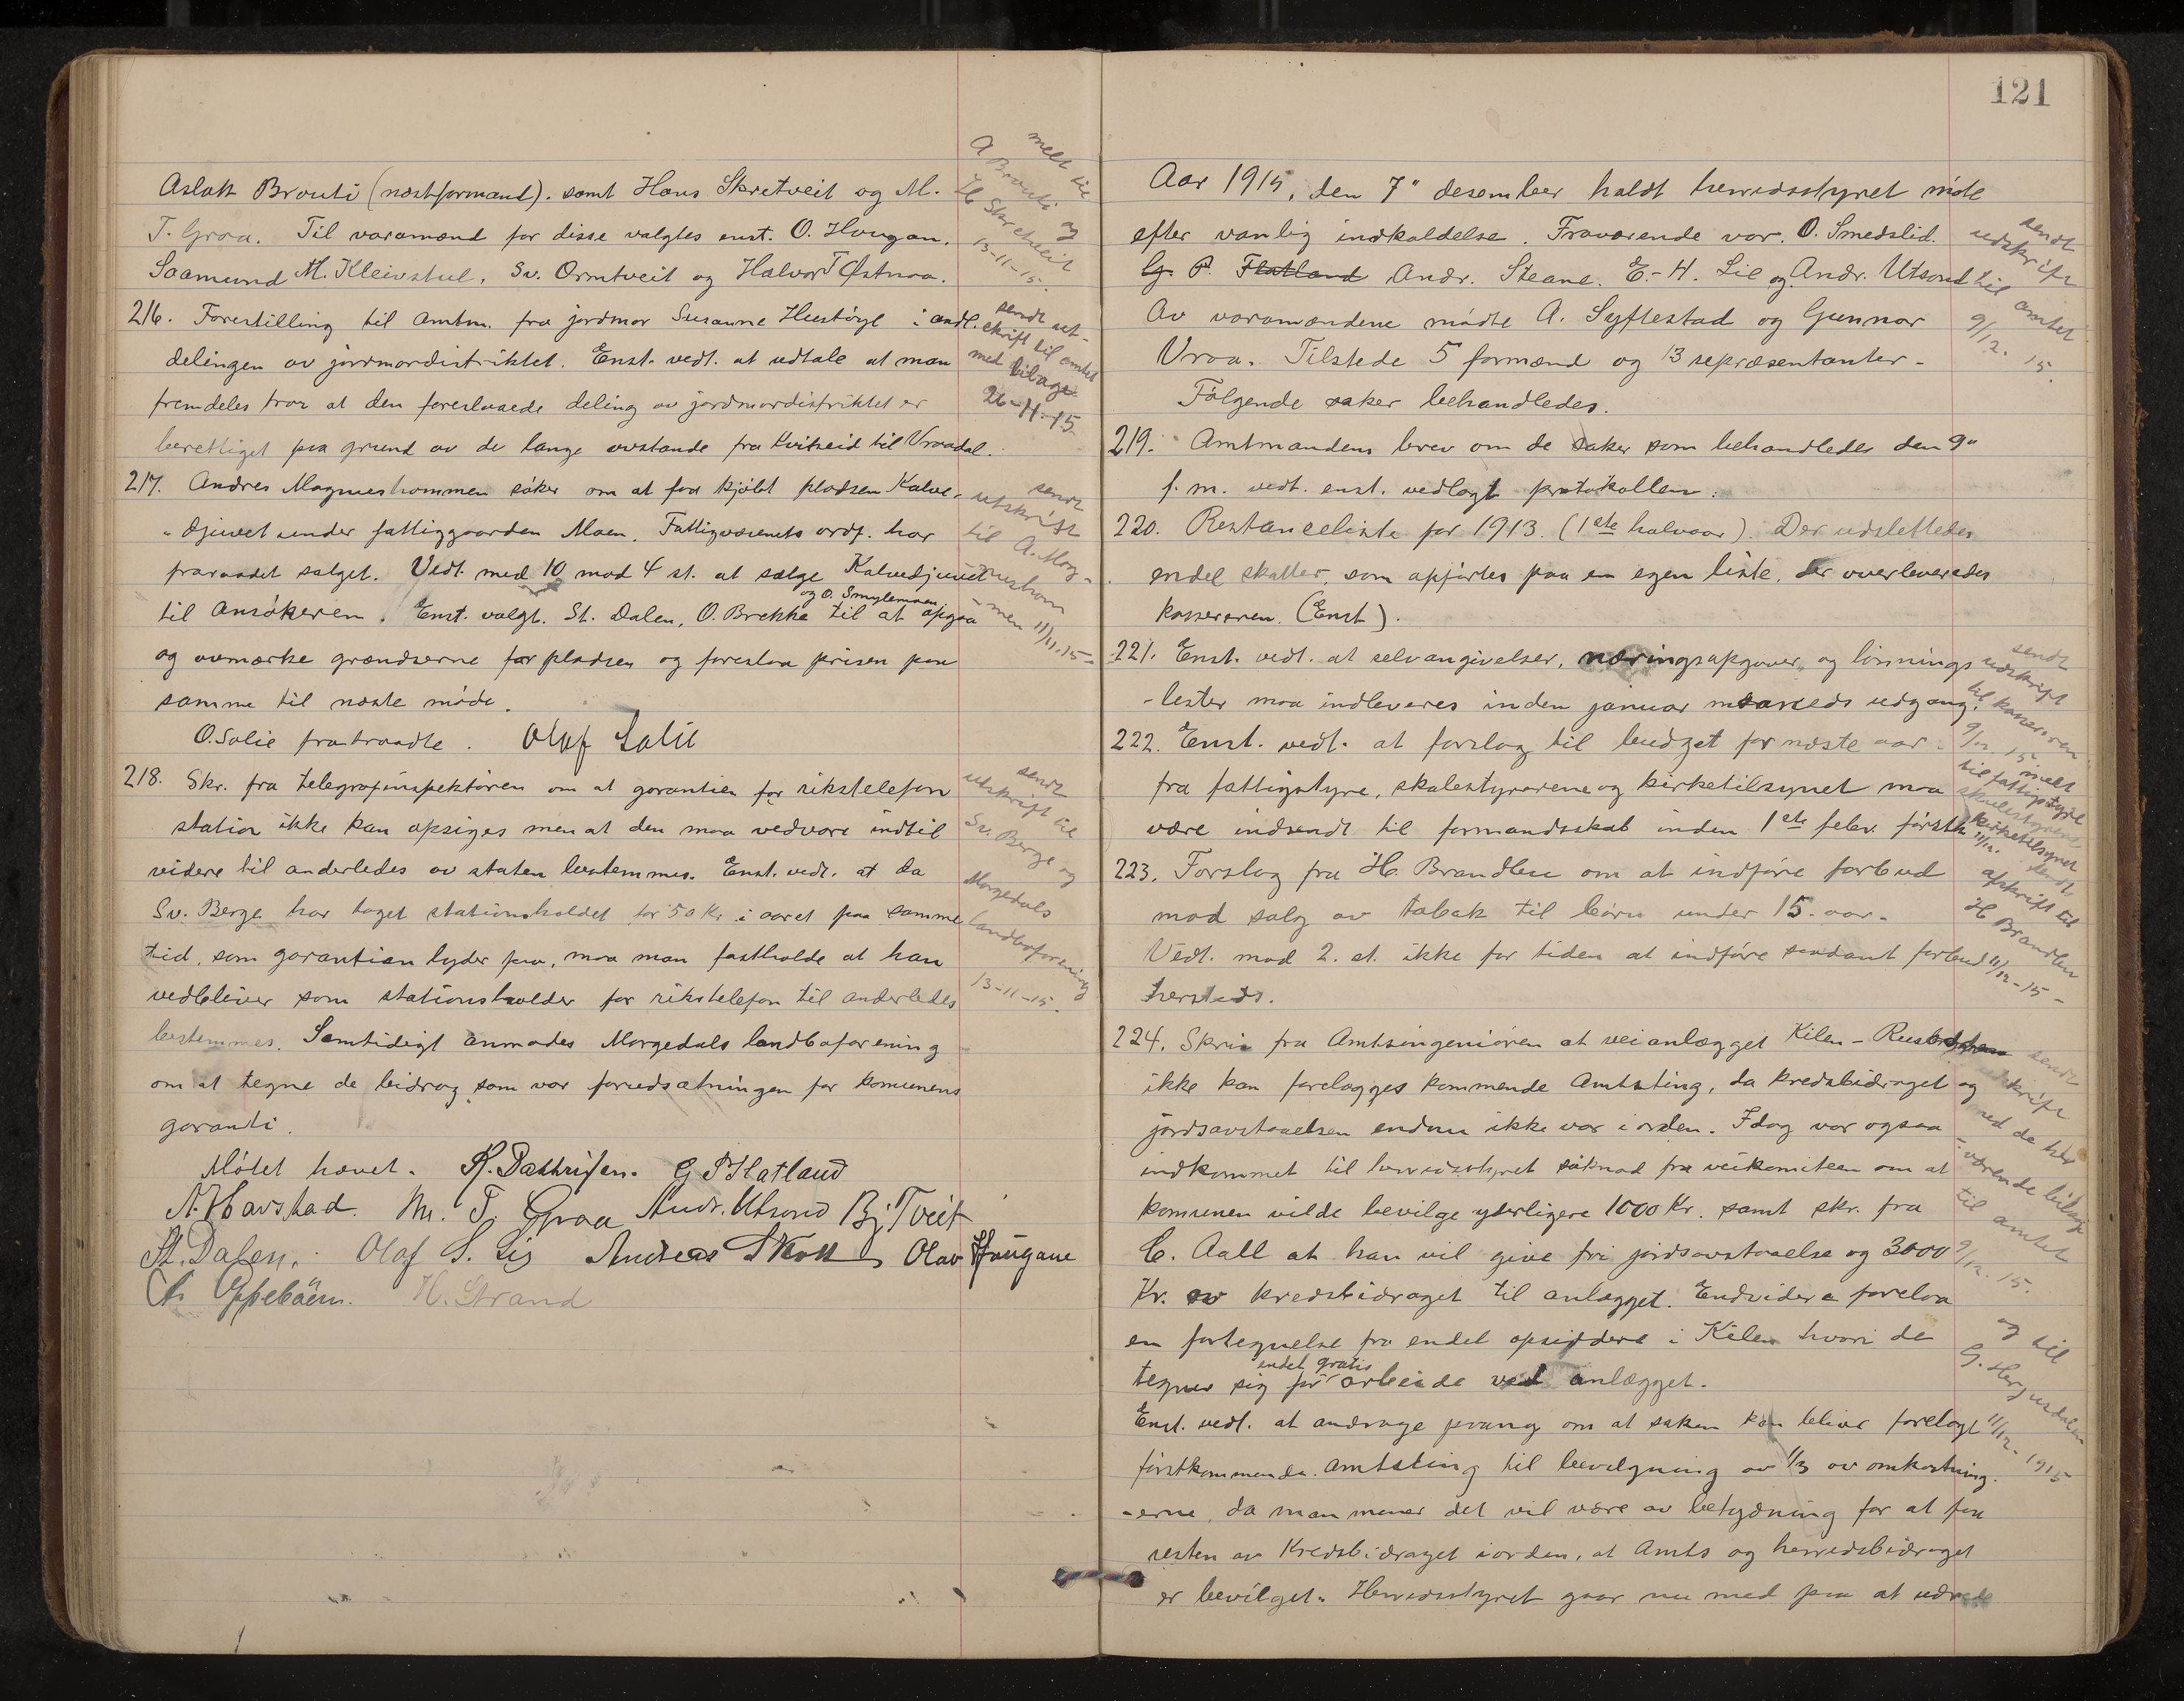 Aslak Brouti (næstformand). samt Hans Skretveit og M.
T. Groa. Til varamænd for disse valgtes enst. O. Hougan.
Saamund M. Kleivstul, Sv. Ormtveit og Halvor T Østnaa.
melt til
A Brouti og
H Skretveit
13-11-15.
216. Forestilling til amtm. fra jordmor Susanne Hustøyl i andl.
delingen av jordmordistriktet. Enst. vedt. at udtale at man
fremdeles tror at den foreslaaede deling av jordmordistriktet er
berettiget paa grund av de lange avstande fra Kviteseid til Vraadal.
sendt ut-
skrift til amtet
med bilage
26-11-15
217. Andres Magnushommen søker om at faa kjøbt pladsen Kalve-
"djuvet under fattiggaarden Moen. Fattigvæsenets ordf. har
fraraadet salget. Vedt. med 10 mod 4 st. at sælge Kalvedjuvet
til Ansøkeren. Enst. valgt. St. Dalen, O. Brekke og O. Smylemoen til at opgaa
og avmærke grændserne for pladsen og foreslaa prisen paa
samme til næste møde.
sendt
utskrift
til A. Mag-
nushom
-men 11/11.15-
O. Solie fratraadte. Olaf Solie
218. Skr. fra telegrafinspektøren om at garantien for rikstelefon
station ikke kan opsiges men at den maa vedvare indtil
videre til anderledes av staten bestemmes. Enst. vedt. at da
Sv. Berge har taget stationsholdet for 50 Kr. i aaret paa samme
tid, som garantien lyder paa, maa man fastholde at han
vedbliver som stationsholder for rikstelefon til anderledes
bestemmes. Samtidigt anmodes Morgedals landboforening
om at tegne de bidrag som var forudsætningen for komunens
garanti.
sendt
utskrift til
Sv. Berge og
Morgedals
landboforening
13-11-15.
Møtet hævet. G P Flatland
A. Havstad. M. T. Groa Andr. Utsond Bj. Tveit
St. Dalen. Olaf S. Lij Andreas Olav Hougane
H. Strand
121
Aar 1915, den 7" desember holdt herredsstyret møte
efter vanlig indkaldelse. Fraværende var. O. Smedslid.
G. P. Flatland Andr. Steane. E. H. Lie og Andr. Utsond
Av varamændene mødte A. Syftestad og Gunnar
Vraa. Tilstede 5 formænd og 13 repræsentanter.
Følgende saker behandledes.
sendt
udskrift
til amtet
9/12. 15.
219. Amtmandens brev om de saker som behandledes den 9"
f. m. vedt. enst. vedlagt protokollen.
220. Restanceliste for 1913. (1ste halvaar). Der udslettedes
endel skatter, som opførtes paa en egen liste, der overleveredes
kassereren. (Enst).
221. Enst. vedt. at selvangivelser, næringsopgaver, og lønnings
-lister maa indleveres inden januar maaneds udgang.
sendt
udskrift
til kassereren
9/12. 15
222. Enst. vedt. at forslag til budget for næste aar
fra fattigstyre, skolestyrerene og kirketilsynet maa
være indsendt til formandsskab inden 1ste febr. førstk.
melt
til fattigstyre
skulestyrene
kirketilsynet
11/12.
223. Forslag fra H. Brandlien om at indføre forbud
mod salg av tabak til børn under 15 aar.
Vedt. mod 2. st. ikke for tiden at indføre saadant forbud
hersteds.
sendt
afskrift til
H Brandlien
11/12-15-
224. Skriv fra Amtsingeniøren at veianlægget Kilen -
ikke kan forelægges kommende Amtsting, da kredsbidraget og
jordsavstaaelsen endnu ikke var i orden. Idag var ogsaa
indkommet til herredsstyret søknad fra veikomiteen om at
komunen vilde bevilge yderligere 1000 Kr. samt skr. fra
C. Aall at han vil give fri jordsavstaaelse og 3000
Kr. av kredsbidraget til anlægget. Endvidere forelaa
en fortegnelse fra endel opsiddere i Kilen hvori de
tegner sig for endel gratis arbeide ved anlægget.
Enst. vedt. at andrage paany om at saken kan blive forelagt
førstkommende Amtsting til bevilgning av 1/3 av omkostning
-erne, da man mener det vil være av betydning for at faa
resten av Kredsbidraget iorden, at Amts og herredsbidraget
er bevilget. Herredsstyret gaar nu med paa at udrede
sendt
udskrift
med de hør
-ende bilage
til amtet
9/12. 15.
og til
G.
11/12. 1915